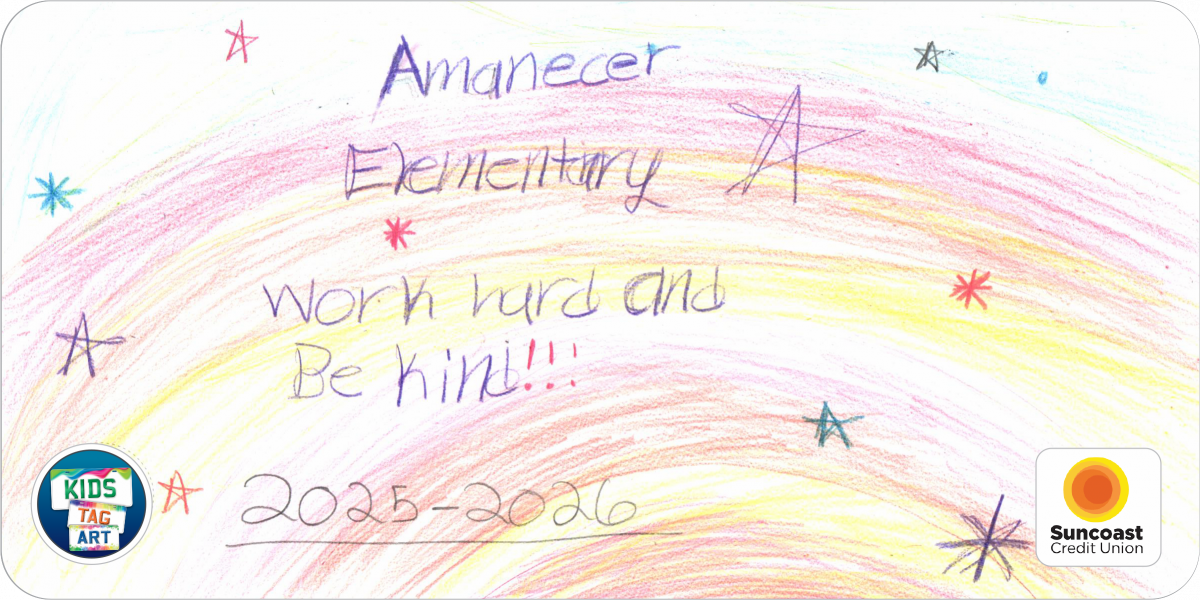 Amanecer
Elementary
Work hard and
Be kind!!!
2025-2026
KIDS
TAG
ART
Suncoast
Credit Union